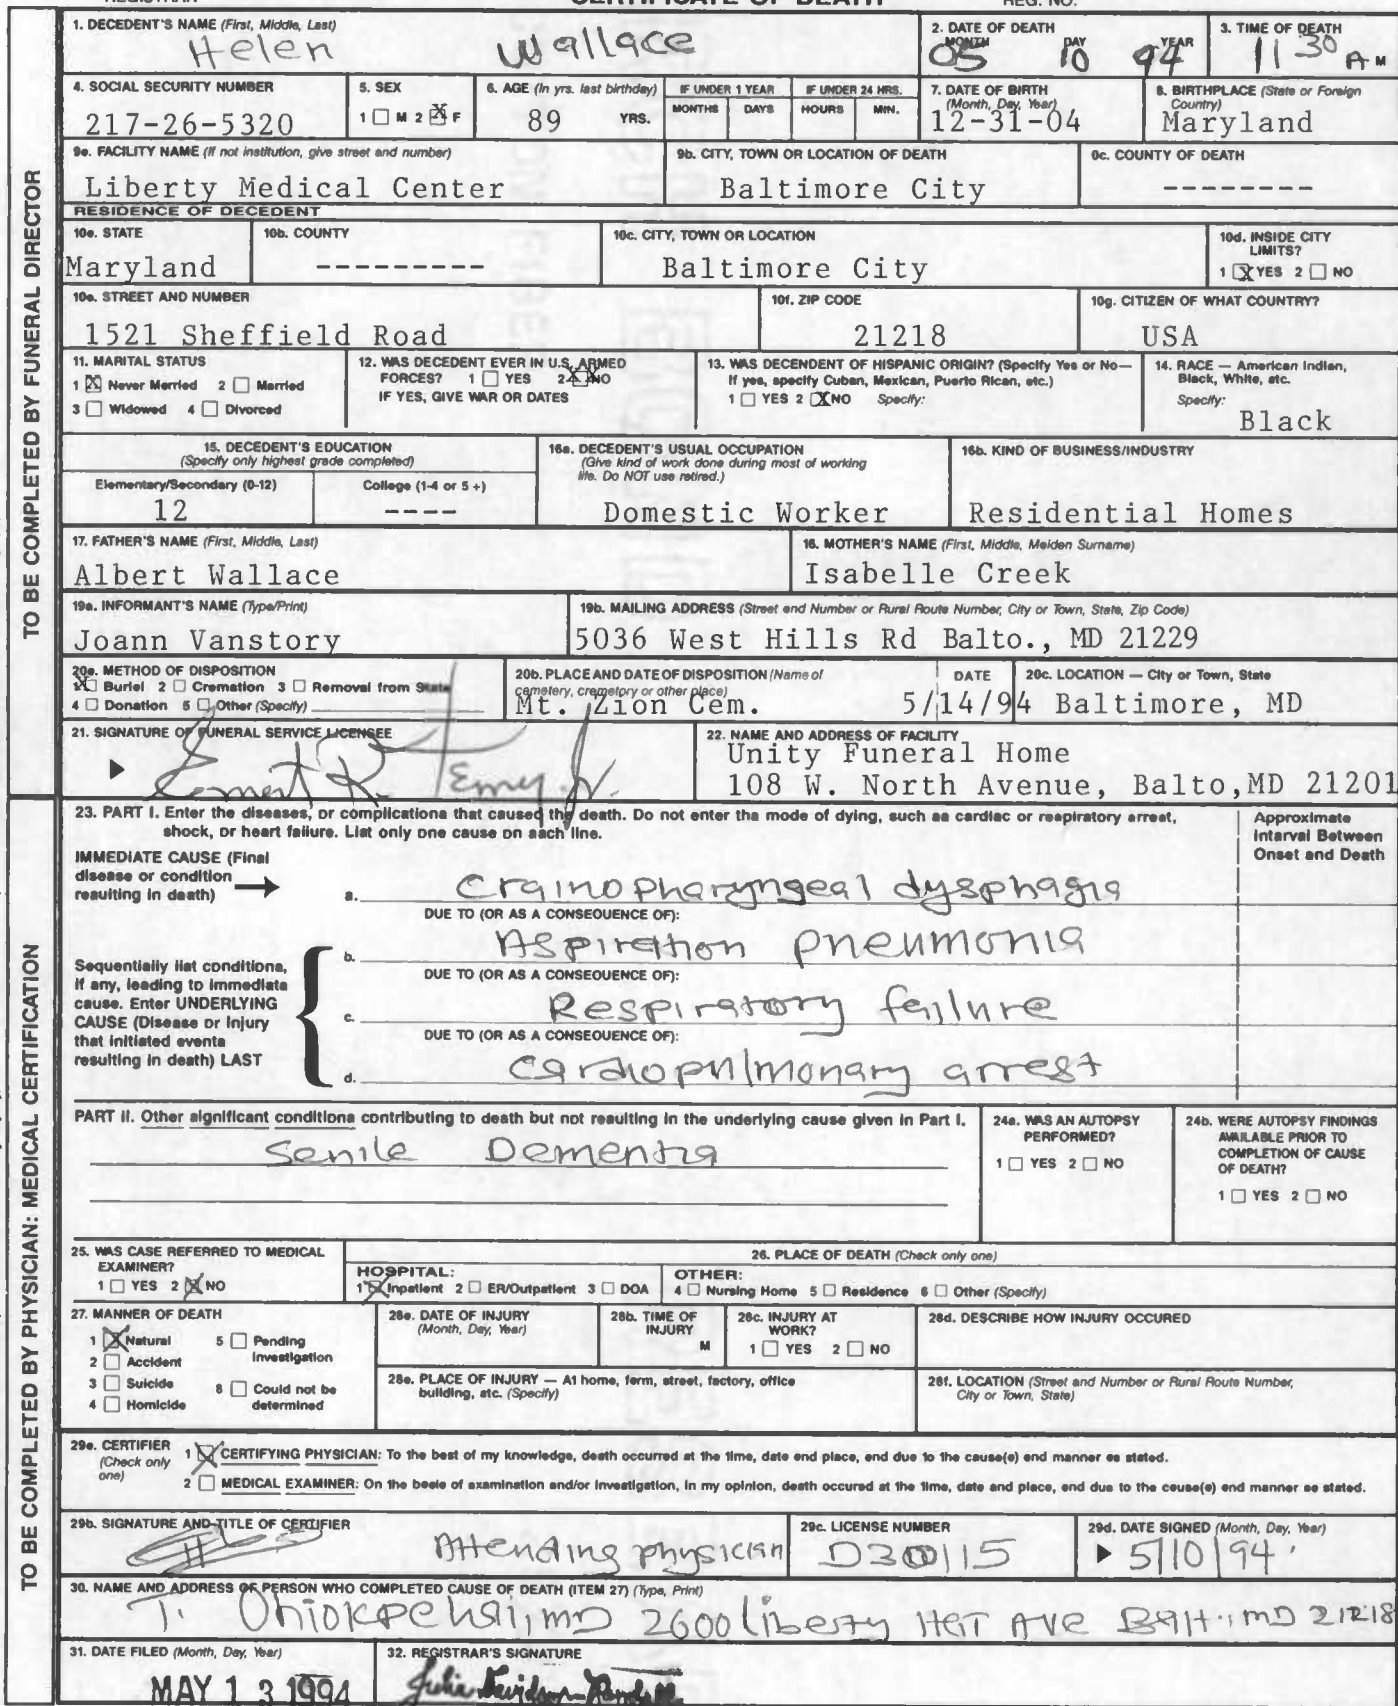 CERTIFICATE OF DEATH
REGISTRAR REG. NO.
TO BE COMPLETED BY FUNERAL DIRECTOR
1. DECEDENT'S NAME (First, Middle, Last)
Helen Wallace
2. DATE OF DEATH
MONTH DAY YEAR
05 10 94
3. TIME OF DEATH
11 30 A M
4. SOCIAL SECURITY NUMBER
217-26-5320
5. SEX
1 M 2 X F
6. AGE (In yrs. last birthday)
89 YRS.
IF UNDER 1 YEAR
MONTHS DAYS
IF UNDER 24 HRS.
HOURS MIN.
7. DATE OF BIRTH
(Month, Day, Year)
12-31-04
8. BIRTHPLACE (State or Foreign
Country)
Maryland
9a. FACILITY NAME (If not institution, give street and number)
Liberty Medical Center
9b. CITY, TOWN OR LOCATION OF DEATH
Baltimore City
9c. COUNTY OF DEATH
--------
RESIDENCE OF DECEDENT
10a. STATE
Maryland
10b. COUNTY
---------
10c. CITY, TOWN OR LOCATION
Baltimore City
10d. INSIDE CITY
LIMITS?
1 X YES 2 NO
10e. STREET AND NUMBER
1521 Sheffield Road
10f. ZIP CODE
21218
10g. CITIZEN OF WHAT COUNTRY?
USA
11. MARITAL STATUS
1 X Never Married 2 Married
3 Widowed 4 Divorced
12. WAS DECEDENT EVER IN U.S. ARMED
FORCES? 1 YES 2 X NO
IF YES, GIVE WAR OR DATES
13. WAS DECENDENT OF HISPANIC ORIGIN? (Specify Yes or No—
If yes, specify Cuban, Mexican, Puerto Rican, etc.)
1 YES 2 X NO Specify:
14. RACE — American Indian,
Black, White, etc.
Specify:
Black
15. DECEDENT'S EDUCATION
(Specify only highest grade completed)
Elementary/Secondary (0-12) College (1-4 or 5+)
12 ----
16a. DECEDENT'S USUAL OCCUPATION
(Give kind of work done during most of working
life. Do NOT use retired.)
Domestic Worker
16b. KIND OF BUSINESS/INDUSTRY
Residential Homes
17. FATHER'S NAME (First, Middle, Last)
Albert Wallace
18. MOTHER'S NAME (First, Middle, Maiden Surname)
Isabelle Creek
19a. INFORMANT'S NAME (Type/Print)
Joann Vanstory
19b. MAILING ADDRESS (Street and Number or Rural Route Number, City or Town, State, Zip Code)
5036 West Hills Rd Balto., MD 21229
20a. METHOD OF DISPOSITION
1 X Burial 2 Cremation 3 Removal from State
4 Donation 5 Other (Specify)
20b. PLACE AND DATE OF DISPOSITION (Name of
cemetery, crematory or other place)
Mt. Zion Cem.
DATE
5/14/94
20c. LOCATION — City or Town, State
Baltimore, MD
21. SIGNATURE OF FUNERAL SERVICE LICENSEE
22. NAME AND ADDRESS OF FACILITY
Unity Funeral Home
108 W. North Avenue, Balto,MD 21201
TO BE COMPLETED BY PHYSICIAN: MEDICAL CERTIFICATION
23. PART I. Enter the diseases, or complications that caused the death. Do not enter the mode of dying, such as cardiac or respiratory arrest,
shock, or heart failure. List only one cause on each line.
Approximate
Interval Between
Onset and Death
IMMEDIATE CAUSE (Final
disease or condition
resulting in death)
a. Crainopharyngeal dysphagia
DUE TO (OR AS A CONSEQUENCE OF):
b. Aspiration pneumonia
DUE TO (OR AS A CONSEQUENCE OF):
c. Respiratory failure
DUE TO (OR AS A CONSEQUENCE OF):
d. Cardiopulmonary arrest
Sequentially list conditions,
if any, leading to immediate
cause. Enter UNDERLYING
CAUSE (Disease or injury
that initiated events
resulting in death) LAST
PART II. Other significant conditions contributing to death but not resulting in the underlying cause given in Part I.
Senile Dementia
24a. WAS AN AUTOPSY
PERFORMED?
1 YES 2 NO
24b. WERE AUTOPSY FINDINGS
AVAILABLE PRIOR TO
COMPLETION OF CAUSE
OF DEATH?
1 YES 2 NO
25. WAS CASE REFERRED TO MEDICAL
EXAMINER?
1 YES 2 X NO
26. PLACE OF DEATH (Check only one)
HOSPITAL:
1 X Inpatient 2 ER/Outpatient 3 DOA
OTHER:
4 Nursing Home 5 Residence 6 Other (Specify)
27. MANNER OF DEATH
1 X Natural 5 Pending
Investigation
2 Accident
3 Suicide 6 Could not be
determined
4 Homicide
28a. DATE OF INJURY
(Month, Day, Year)
28b. TIME OF
INJURY
M
28c. INJURY AT
WORK?
1 YES 2 NO
28d. DESCRIBE HOW INJURY OCCURED
28e. PLACE OF INJURY — At home, farm, street, factory, office
building, etc. (Specify)
28f. LOCATION (Street and Number or Rural Route Number,
City or Town, State)
29a. CERTIFIER
(Check only
one)
1 X CERTIFYING PHYSICIAN: To the best of my knowledge, death occurred at the time, date and place, and due to the cause(s) and manner as stated.
2 MEDICAL EXAMINER: On the basis of examination and/or investigation, in my opinion, death occured at the time, date and place, and due to the cause(s) and manner as stated.
29b. SIGNATURE AND TITLE OF CERTIFIER
Attending physician
29c. LICENSE NUMBER
D30115
29d. DATE SIGNED (Month, Day, Year)
5/10/94
30. NAME AND ADDRESS OF PERSON WHO COMPLETED CAUSE OF DEATH (ITEM 27) (Type, Print)
T. MD 2600 liberty HGT AVE Balt., MD 21218
31. DATE FILED (Month, Day, Year)
MAY 13 1994
32. REGISTRAR'S SIGNATURE
Julia Davidson-Randall